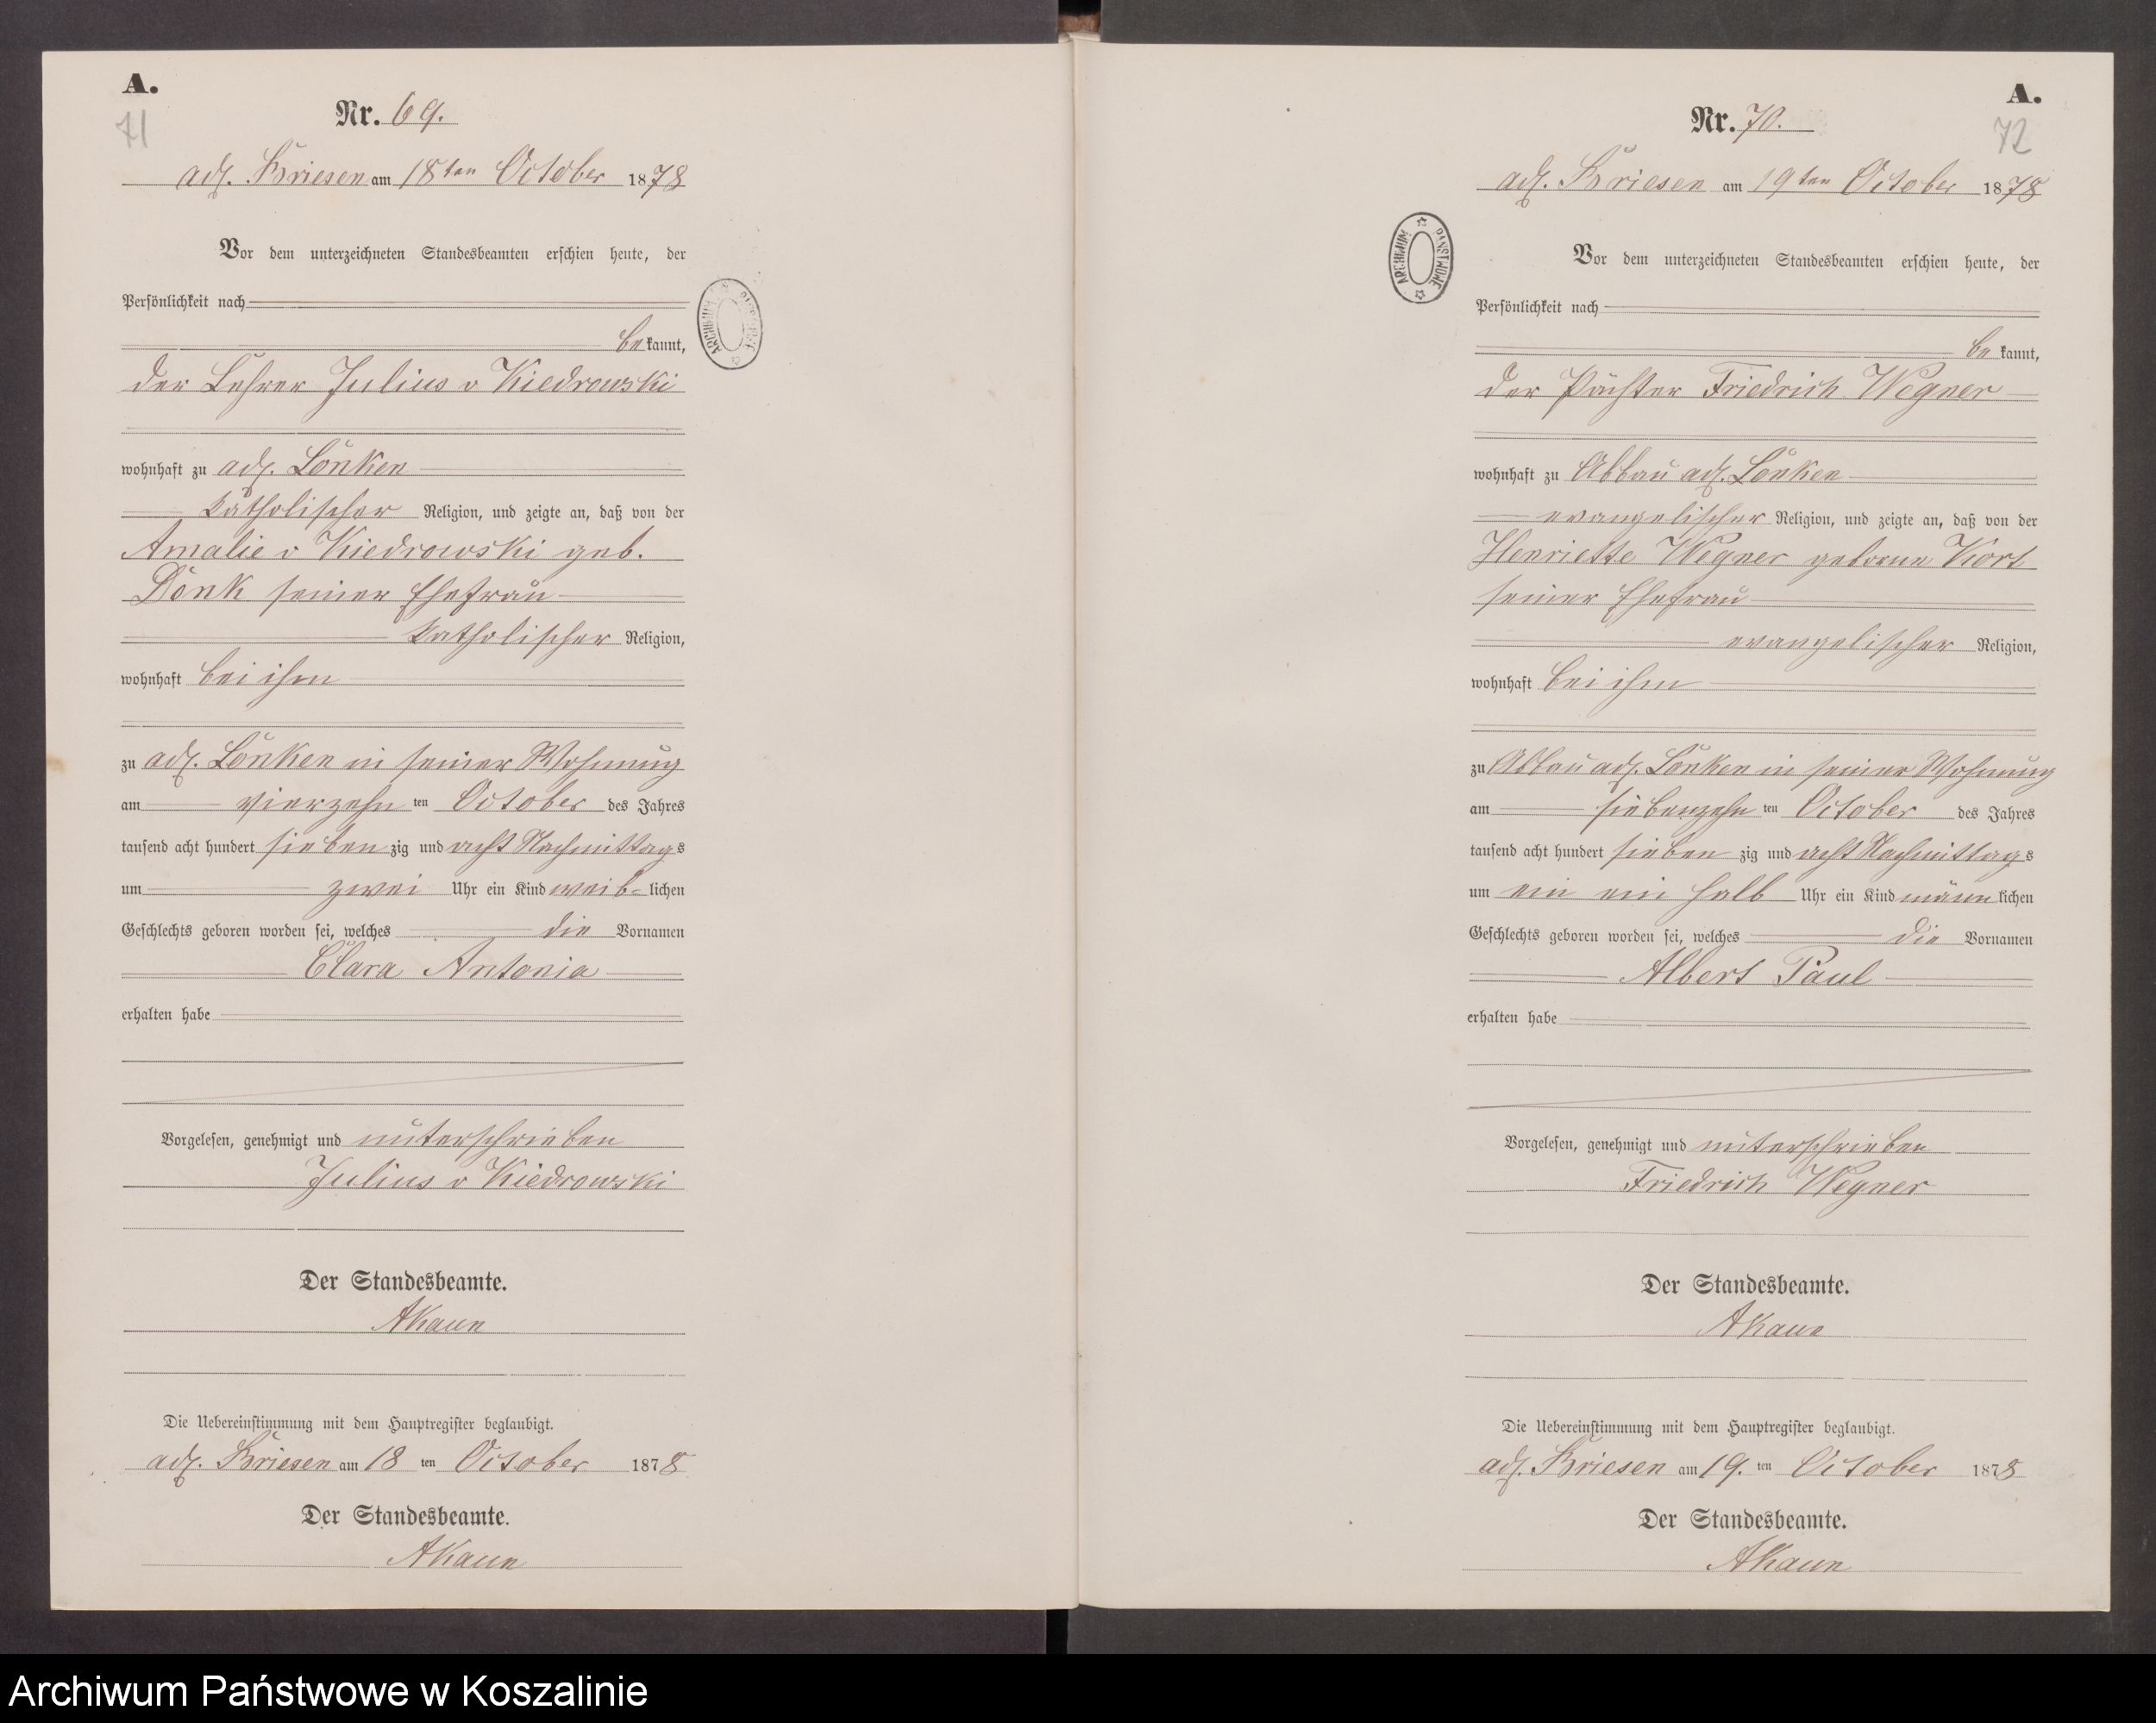 A.
71
Nr. 69.
adl. Briesen am 18ten October 1878
Vor dem unterzeichneten Standesbeamten erschien heute, der
Persönlichkeit nach
bekannt,
der Lehrer Julius v Kiedrowski
wohnhaft zu adl. Lonken
katholischer Religion, und zeigte an, daß von der
Amalie v Kiedrowski geb.
Donk seiner Ehefrau
katholischer Religion,
wohnhaft bei ihm
zu adl. Lonken in seiner Wohnung
am vierzehn ten October des Jahres
tausend acht hundert sieben zig und acht Nachmittags
um zwei Uhr ein Kind weib-lichen
Geschlechts geboren worden sei, welches die Vornamen
Clara Antonia
erhalten habe
Vorgelesen, genehmigt und unterschrieben
Julius v Kiedrowski
Der Standesbeamte.
AKaun
Die Uebereinstimmung mit dem Hauptregister beglaubigt.
adl. Briesen am 18 ten October 1878
Der Standesbeamte.
AKaun
ARCHIWUM
A.
72
Nr. 70.
adl. Briesen am 19ten October 1878
ARCHIWUM PAŃSTWOWE
Vor dem unterzeichneten Standesbeamten erschien heute, der
Persönlichkeit nach
bekannt,
der Pächter Friedrich Wegner
wohnhaft zu Abbau adl. Lonken
evangelischer Religion, und zeigte an, daß von der
Henriette Wegner geborne Kort
seiner Ehefrau
evangelischer Religion,
wohnhaft bei ihm
zu Abbau adl. Lonken in seiner Wohnung
am siebenzehn ten October des Jahres
tausend acht hundert sieben zig und acht Nachmittags
um ein ein halb Uhr ein Kind männlichen
Geschlechts geboren worden sei, welches die Vornamen
Albert Paul
erhalten habe
Vorgelesen, genehmigt und unterschrieben
Friedrich Wegner
Der Standesbeamte.
AKaun
Die Uebereinstimmung mit dem Hauptregister beglaubigt.
adl. Briesen am 19. ten October 1878
Der Standesbeamte.
AKaun
Archiwum Państwowe w Koszalinie